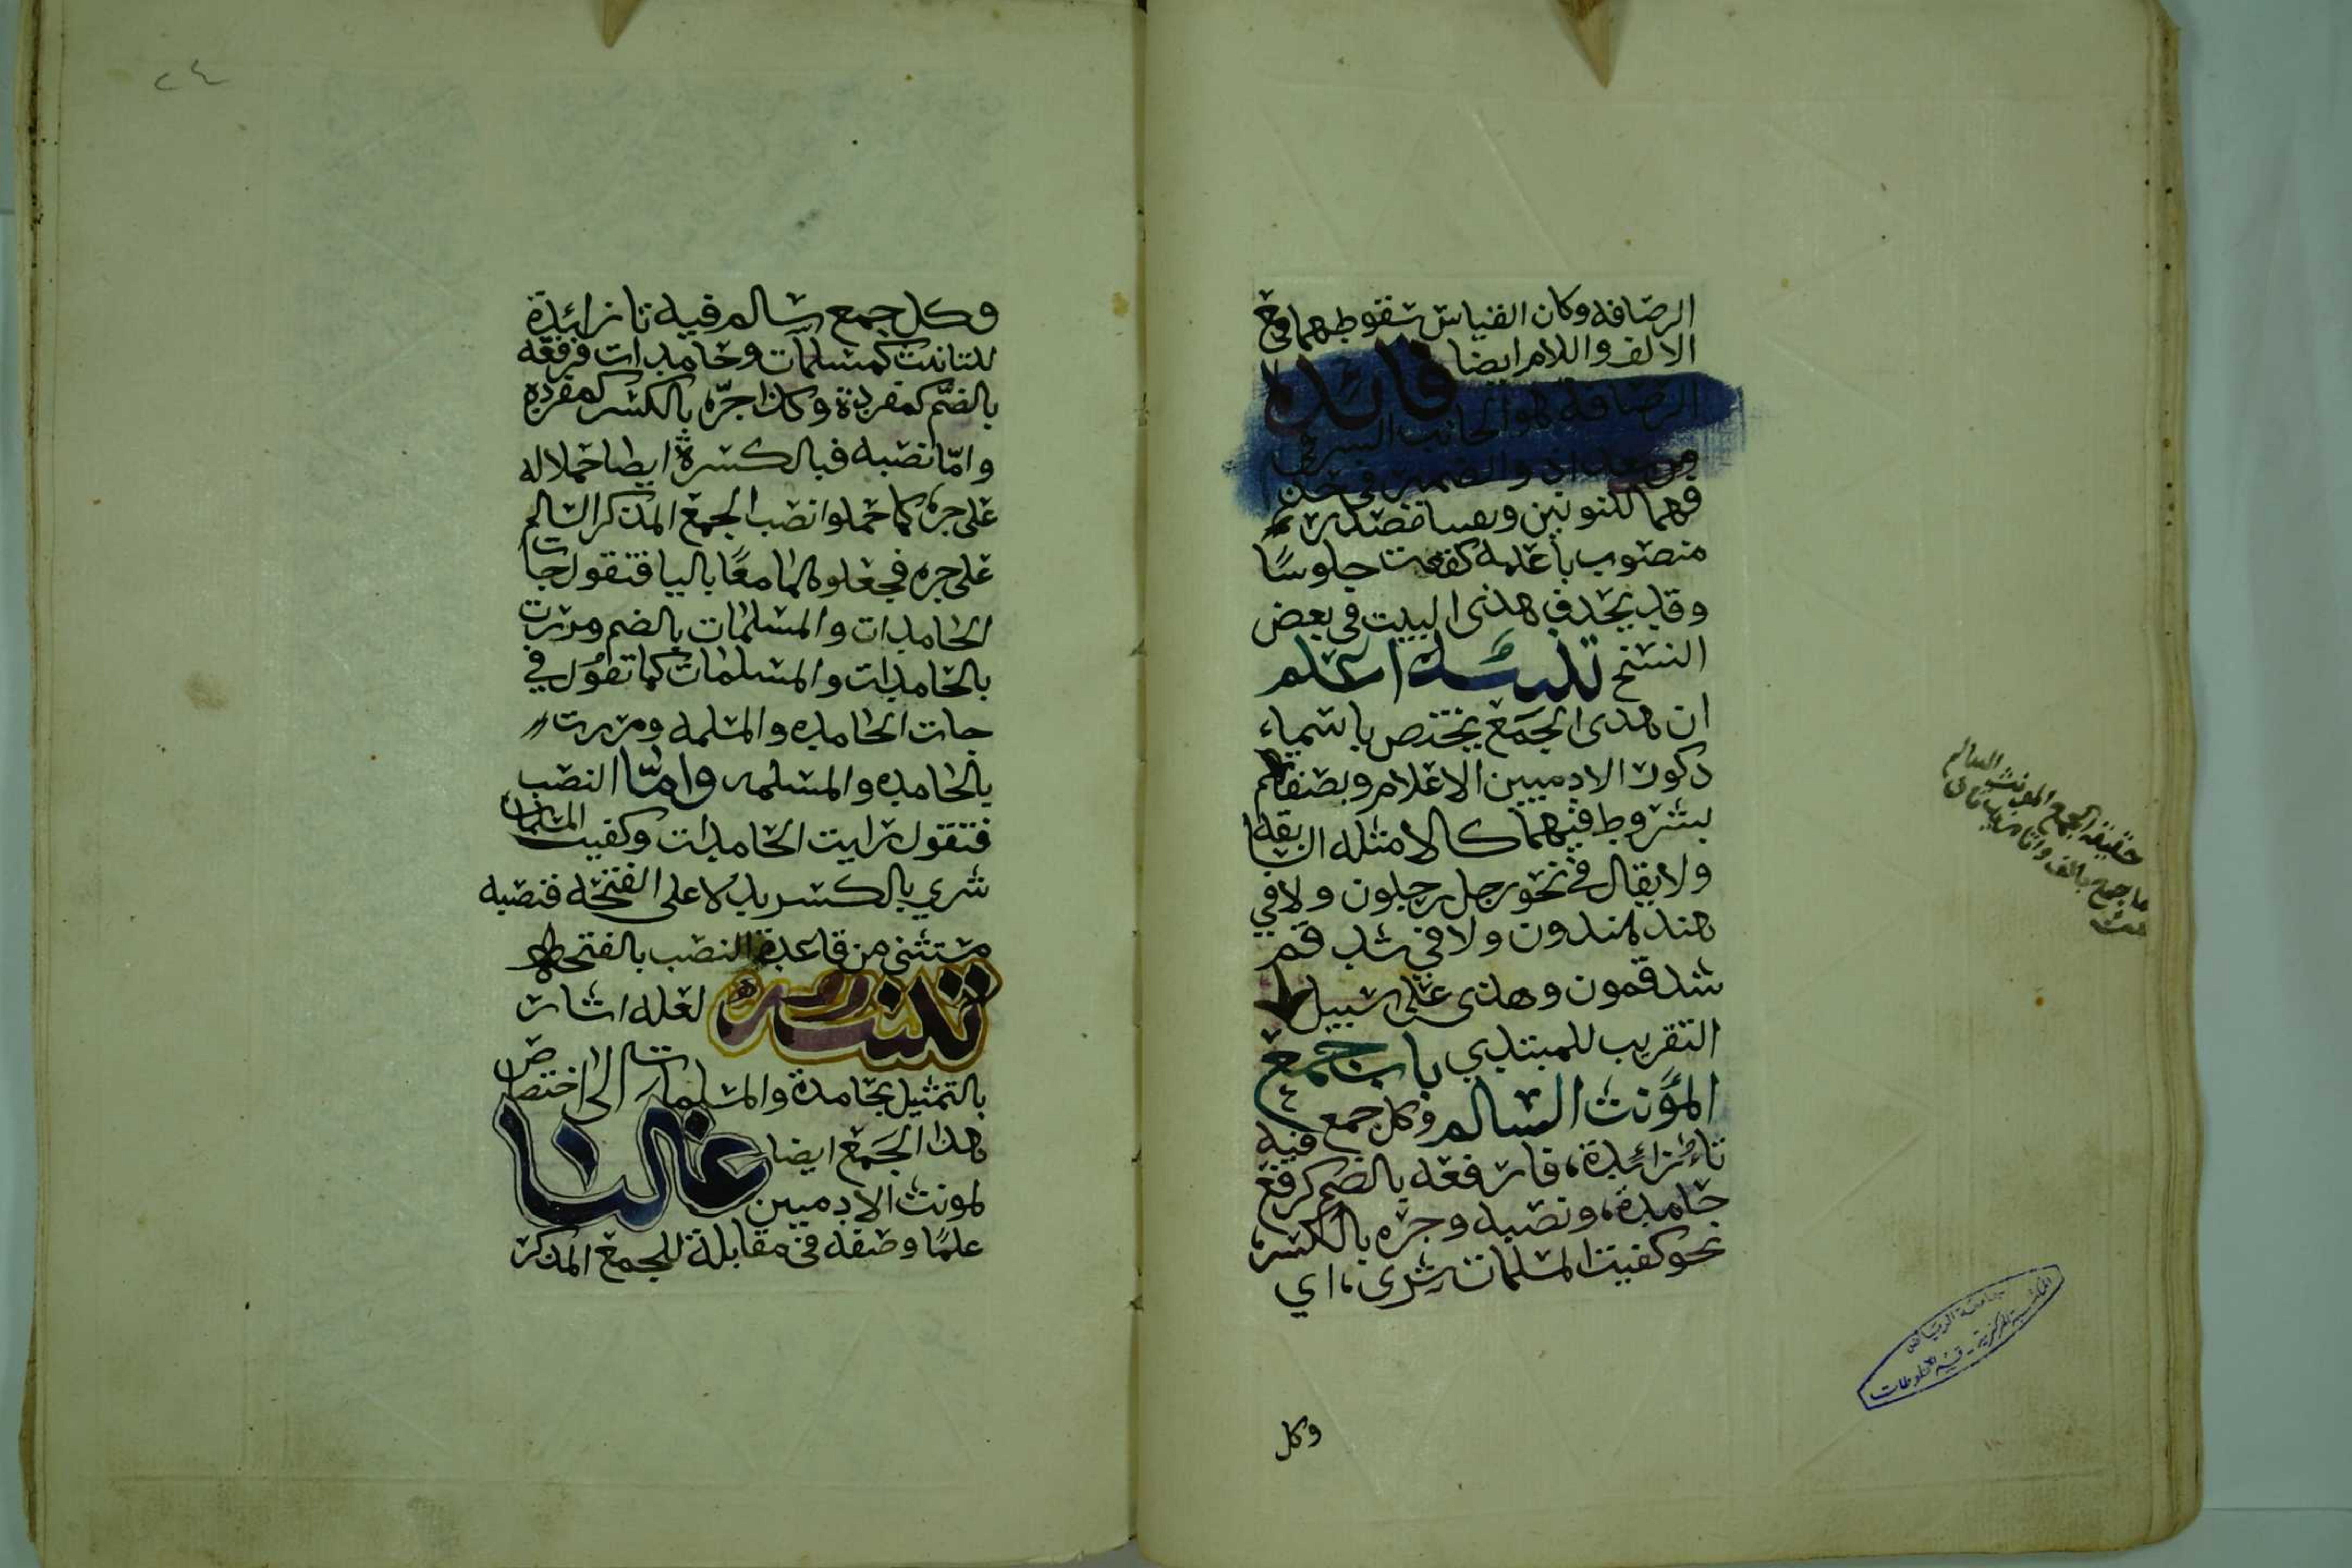 الرضافه وكان القياس سقوطهما مع
الالف واللام ايضا فائده
الرضافة هو الجانب الشرقي
من بغداد والضمير في حذ
فهما للنونين ومصدر
منصوب باعلمه كقعدت جلوسًا
وقد يحذف هذى البيت في بعض
النسخ تنبيه اعلم
ان هدى الجمع يختص باسماء
دكور الادميين الاعلام وبصفاتهم
بشروط فيهما كالامثله السابقه
ولا يقال في نحو رجل رجلون ولا في
هند هندون ولا في شدقم
شدقمون وهذى على سبيل
التقريب للمبتدي باب جمع
المؤنث السالم وكل جمع فيه
تاء زائدة، فارفعه بالضم كرفع
حامدة، ونصبه وجره بالكسر،
نحو كفيت المسلمات شرى، اي
وكل
حقيقة الجمع المونث السالم
ما جمع بالف وتا مزيدتان
جامعة الرياض
المكتبة المركزية - قسم المخطوطات
٢٤
وكل جمع سالم فيه تا زائدة
للتانيث كمسلمات وحامدات فرفعه
بالضم كمفردة وكذا جرّه بالكسر كمفرده
وامّا نصبه فبالكسرة ايضا حملا له
على جره كما حملوا نصب الجمع المذكر السالم
على جره فجعلوهما معًا باليا فتقول جات
الحامدات والمسلمات بالضم ومررت
بالحامدات والمسلمات كما تقول في
جات الحامده والمسلمه ومررت
بالحامده والمسلمه وامّا النصب
فتقول رايت الحامدات وكفيت المسلمات
شري بالكسر بدلا على الفتحه فنصبه
مستثنى من قاعدة النصب بالفتحه
تنبيه لعله اشار
بالتمثيل بحامدة والمسلمات الى اختصاص
هدا الجمع ايضا غالبا
لمونث الادميين
علمًا وصفه في مقابلة للجمع المذكر